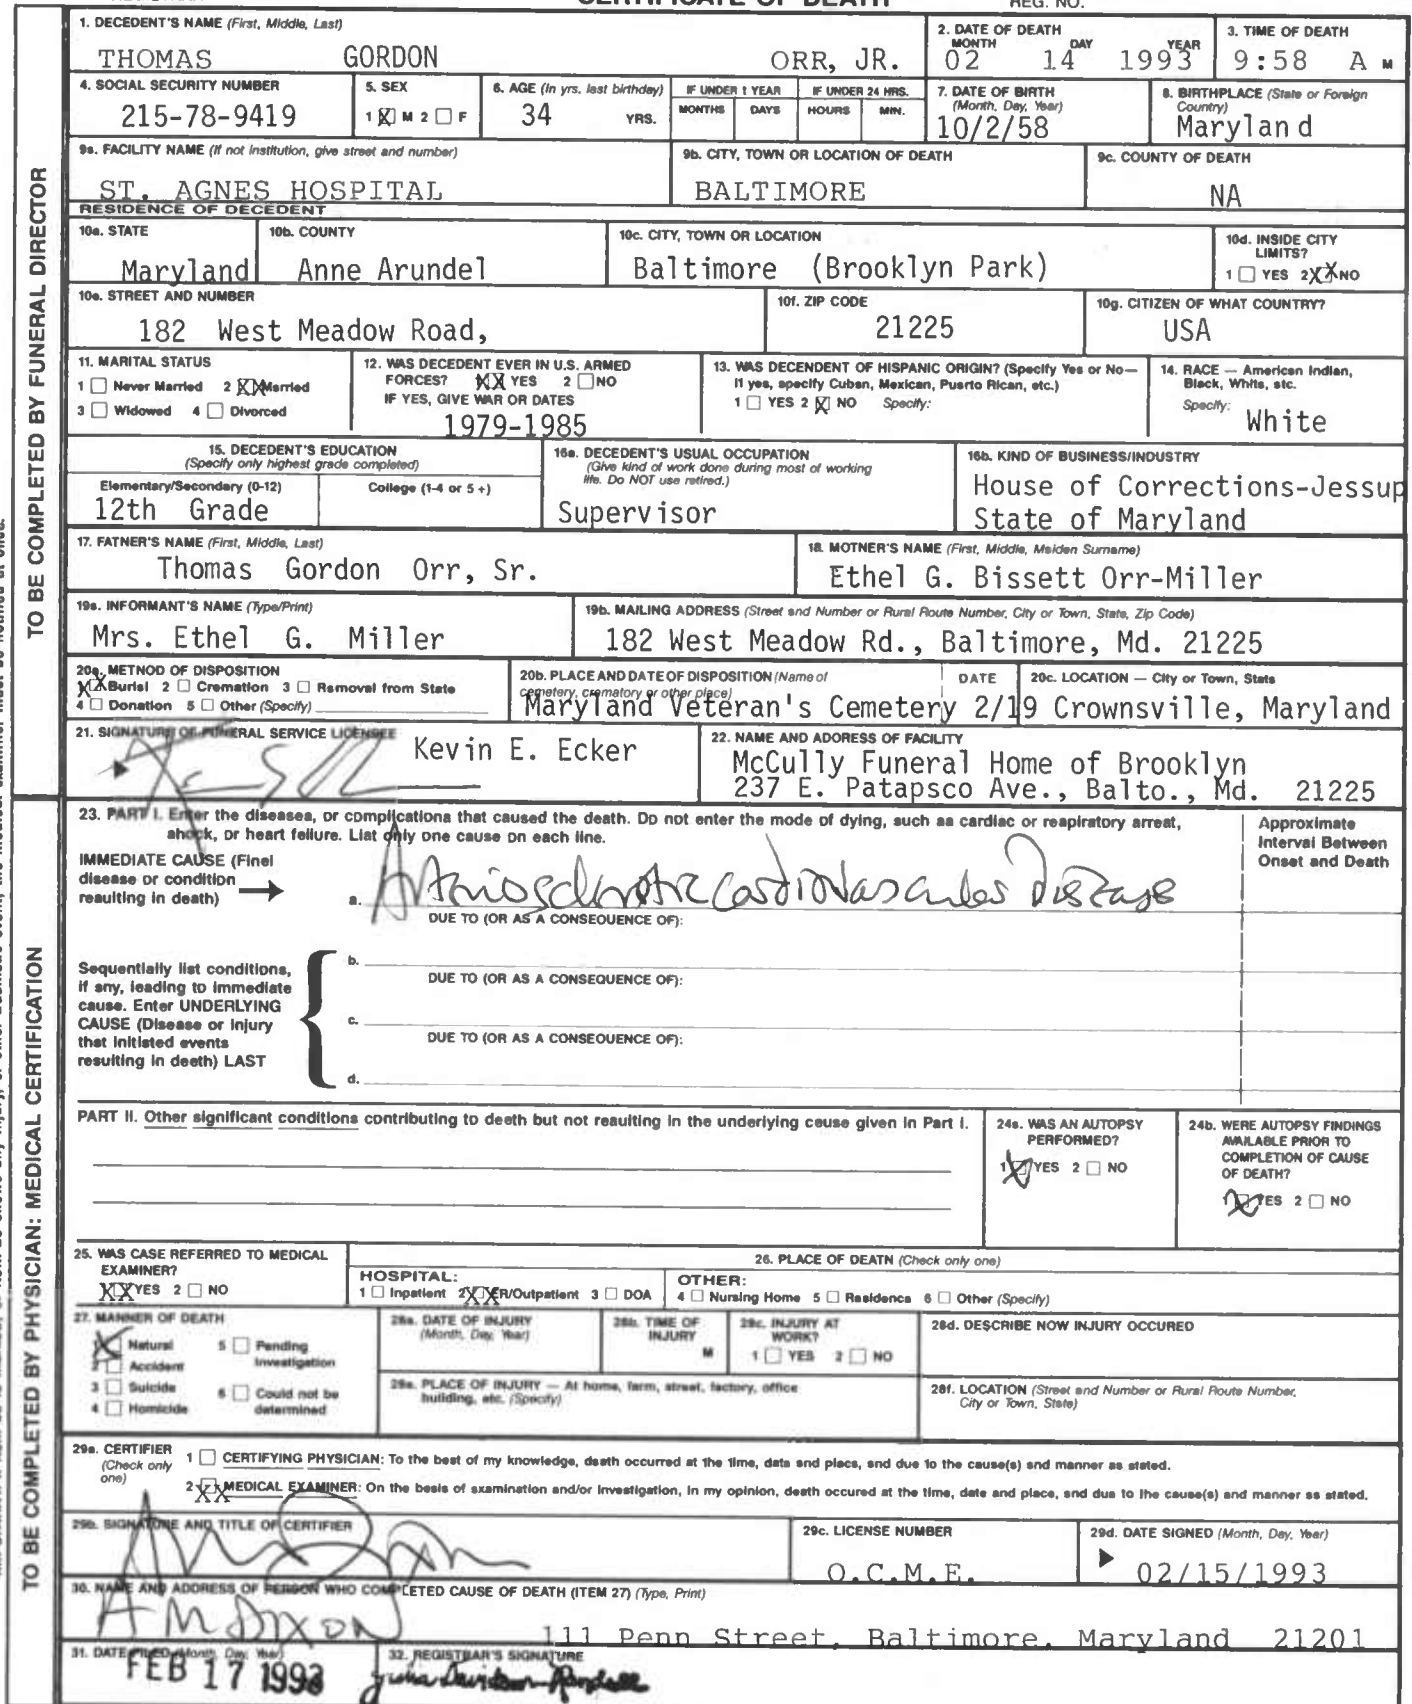 CERTIFICATE OF DEATH
REG. NO.
TO BE COMPLETED BY FUNERAL DIRECTOR
1. DECEDENT'S NAME (First, Middle, Last)
THOMAS GORDON ORR, JR.
2. DATE OF DEATH
MONTH DAY YEAR
02 14 1993
3. TIME OF DEATH
9:58 A M
4. SOCIAL SECURITY NUMBER
215-78-9419
5. SEX
1 X M 2 F
6. AGE (In yrs. last birthday)
34 YRS.
IF UNDER 1 YEAR
MONTHS DAYS
IF UNDER 24 HRS.
HOURS MIN.
7. DATE OF BIRTH
(Month, Day, Year)
10/2/58
8. BIRTHPLACE (State or Foreign
Country)
Maryland
9a. FACILITY NAME (If not institution, give street and number)
ST. AGNES HOSPITAL
9b. CITY, TOWN OR LOCATION OF DEATH
BALTIMORE
9c. COUNTY OF DEATH
NA
RESIDENCE OF DECEDENT
10a. STATE
Maryland
10b. COUNTY
Anne Arundel
10c. CITY, TOWN OR LOCATION
Baltimore (Brooklyn Park)
10d. INSIDE CITY
LIMITS?
1 YES 2 XX NO
10e. STREET AND NUMBER
182 West Meadow Road,
10f. ZIP CODE
21225
10g. CITIZEN OF WHAT COUNTRY?
USA
11. MARITAL STATUS
1 Never Married 2 XX Married
3 Widowed 4 Divorced
12. WAS DECEDENT EVER IN U.S. ARMED
FORCES? XX YES 2 NO
IF YES, GIVE WAR OR DATES
1979-1985
13. WAS DECENDENT OF HISPANIC ORIGIN? (Specify Yes or No—
If yes, specify Cuban, Mexican, Puerto Rican, etc.)
1 YES 2 X NO Specify:
14. RACE — American Indian,
Black, White, etc.
Specify: White
15. DECEDENT'S EDUCATION
(Specify only highest grade completed)
Elementary/Secondary (0-12) College (1-4 or 5+)
12th Grade
16a. DECEDENT'S USUAL OCCUPATION
(Give kind of work done during most of working
life. Do NOT use retired.)
Supervisor
16b. KIND OF BUSINESS/INDUSTRY
House of Corrections-Jessup
State of Maryland
17. FATHER'S NAME (First, Middle, Last)
Thomas Gordon Orr, Sr.
18. MOTHER'S NAME (First, Middle, Maiden Surname)
Ethel G. Bissett Orr-Miller
19a. INFORMANT'S NAME (Type/Print)
Mrs. Ethel G. Miller
19b. MAILING ADDRESS (Street and Number or Rural Route Number, City or Town, State, Zip Code)
182 West Meadow Rd., Baltimore, Md. 21225
20a. METHOD OF DISPOSITION
XX Burial 2 Cremation 3 Removal from State
4 Donation 5 Other (Specify)
20b. PLACE AND DATE OF DISPOSITION (Name of
cemetery, crematory or other place) DATE
Maryland Veteran's Cemetery 2/19
20c. LOCATION — City or Town, State
Crownsville, Maryland
21. SIGNATURE OF FUNERAL SERVICE LICENSEE
Kevin E. Ecker
22. NAME AND ADDRESS OF FACILITY
McCully Funeral Home of Brooklyn
237 E. Patapsco Ave., Balto., Md. 21225
TO BE COMPLETED BY PHYSICIAN: MEDICAL CERTIFICATION
23. PART I. Enter the diseases, or complications that caused the death. Do not enter the mode of dying, such as cardiac or respiratory arrest,
shock, or heart failure. List only one cause on each line.
Approximate
Interval Between
Onset and Death
IMMEDIATE CAUSE (Final
disease or condition
resulting in death)
a. Arteriosclerotic Cardiovascular Disease
DUE TO (OR AS A CONSEQUENCE OF):
Sequentially list conditions,
if any, leading to immediate
cause. Enter UNDERLYING
CAUSE (Disease or injury
that initiated events
resulting in death) LAST
b.
DUE TO (OR AS A CONSEQUENCE OF):
c.
DUE TO (OR AS A CONSEQUENCE OF):
d.
PART II. Other significant conditions contributing to death but not resulting in the underlying cause given in Part I.
24a. WAS AN AUTOPSY
PERFORMED?
1 YES 2 NO
24b. WERE AUTOPSY FINDINGS
AVAILABLE PRIOR TO
COMPLETION OF CAUSE
OF DEATH?
1 YES 2 NO
25. WAS CASE REFERRED TO MEDICAL
EXAMINER?
XX YES 2 NO
26. PLACE OF DEATH (Check only one)
HOSPITAL:
1 Inpatient 2 XX ER/Outpatient 3 DOA
OTHER:
4 Nursing Home 5 Residence 6 Other (Specify)
27. MANNER OF DEATH
1 Natural 5 Pending
Investigation
2 Accident
3 Suicide 6 Could not be
determined
4 Homicide
28a. DATE OF INJURY
(Month, Day, Year)
28b. TIME OF
INJURY
M
28c. INJURY AT
WORK?
1 YES 2 NO
28d. DESCRIBE HOW INJURY OCCURED
28e. PLACE OF INJURY — At home, farm, street, factory, office
building, etc. (Specify)
28f. LOCATION (Street and Number or Rural Route Number,
City or Town, State)
29a. CERTIFIER
(Check only
one)
1 CERTIFYING PHYSICIAN: To the best of my knowledge, death occurred at the time, date and place, and due to the cause(s) and manner as stated.
2 XX MEDICAL EXAMINER: On the basis of examination and/or investigation, in my opinion, death occured at the time, date and place, and due to the cause(s) and manner as stated.
29b. SIGNATURE AND TITLE OF CERTIFIER
29c. LICENSE NUMBER
O.C.M.E.
29d. DATE SIGNED (Month, Day, Year)
02/15/1993
30. NAME AND ADDRESS OF PERSON WHO COMPLETED CAUSE OF DEATH (ITEM 27) (Type, Print)
A M DIXON
111 Penn Street, Baltimore, Maryland 21201
31. DATE FILED (Month, Day, Year)
FEB 17 1993
32. REGISTRAR'S SIGNATURE
Julia Davidson-Randall